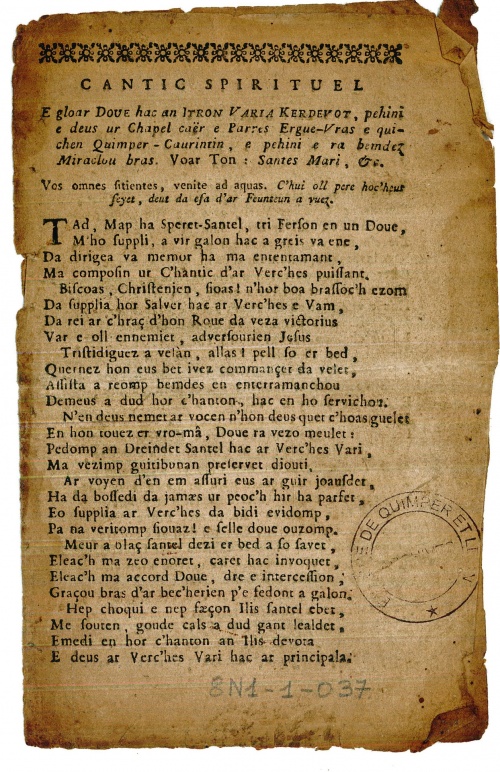 CANTIC SPIRITUEL
E gloar DOUE hac an ITRON VARIA KERDEVOT, pehini
e deus ur Chapel caër e Parres Ergue-Vras e qui-
chen Quimper-Caurintin, e pehini e ra bemdez
Miraclou bras. Voar Ton : Santes Mari, &c.
Vos omnes sitientes, venite ad aquas. C'hui oll pere hoc'heus
seyet, deut da esa d'ar Feunteun a vuez.
TAd, Map ha Speret-Santel, tri Ferson en un Doue,
M'ho suppli, a vir galon hac a greis va ene,
Da dirigea va memor ha ma ententamant,
Ma composin ur C'hantic d'ar Verc'hes puissant.
Biscoas, Christenien, sioas! n'hor boa brassoc'h ezom
Da supplia hor Salver hac ar Verc'hes e Vam,
Da rei ar c'hraç d'hon Roue da veza victorius
Var e oll ennemiet, adversourien Jesus
Tristidiguez a velàn, allas! pell so er bed,
Quernez hon eus bet ivez commançer da velet,
Assista a reomp bemdes en enterramanchou
Demeus a dud hor c'hanton, hac en ho servichou.
N'en deus nemet ar vocen n'hon deus quet c'hoas guelet
En hon touez er vro-mâ, Doue ra vezo meulet :
Pedomp an Dreindet Santel hac ar Verc'hes Vari,
Ma vezimp guitibunan preservet diouti,
Ar voyen d'en em assuri eus ar guir joausdet,
Ha da bossedi da jamæs ur peoc'h hir ha parfet,
Eo supplia ar Verc'hes da bidi evidomp,
Pa na veritomp siouaz! e selle doue ouzomp.
Meur a blaç santel dezi er bed a so savet,
Eleac'h ma zeo enoret, caret hac invoquet,
Eleac'h ma accord Doue, dre e intercession,
Graçou bras d'ar bec'herien p'e fedont a galon.
Hep choqui e nep fæçon Ilis santel ebet,
Me souten, goude cals a dud gant lealdet,
Emedi en hor c'hanton an Ilis devota
E deus ar Verc'hes Vari hac ar principala.
DE QUIMPER ET
8N1-1-037